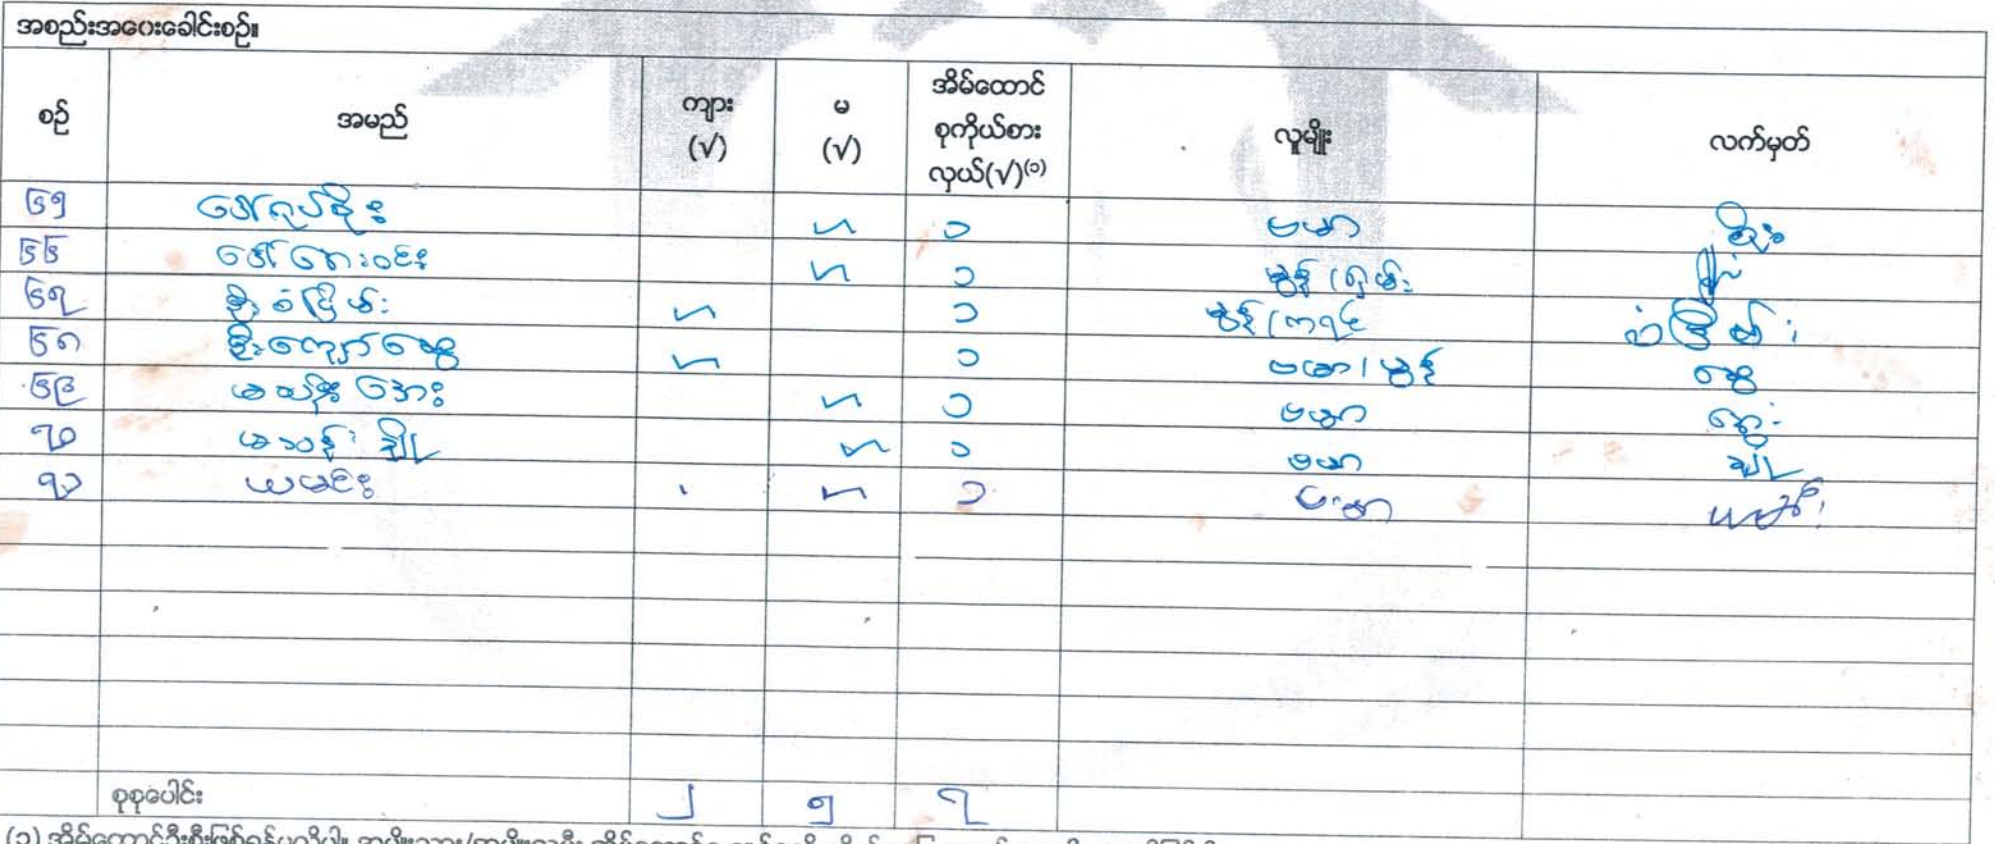 အစည်းအဝေးခေါင်းစဉ်။
စဉ် အမည် ကျား (√) မ (√) အိမ်ထောင်စုကိုယ်စားလှယ်(√)⁽¹⁾ လူမျိုး လက်မှတ်
၆၅ ဒေါ်ဂုပ်စိုး ၁ ဗမာ
၆၆ ဒေါ်အေးဝင်း ၁ မွန်/ရှမ်း
၆၇ ဦးစံငြိမ်း ၁ မွန်/ကရင် စံငြိမ်း
၆၈ ဦးကျော်ဆွေ ၁ ဗမာ/မွန် ဆွေ
၆၉ မစန်းအေး ၁ ဗမာ
၇၀ မသန်းချို ၁ ဗမာ ချို
၇၁ ယမင်း ၁ ဗမာ
စုစုပေါင်း ၂ ၅ ၇